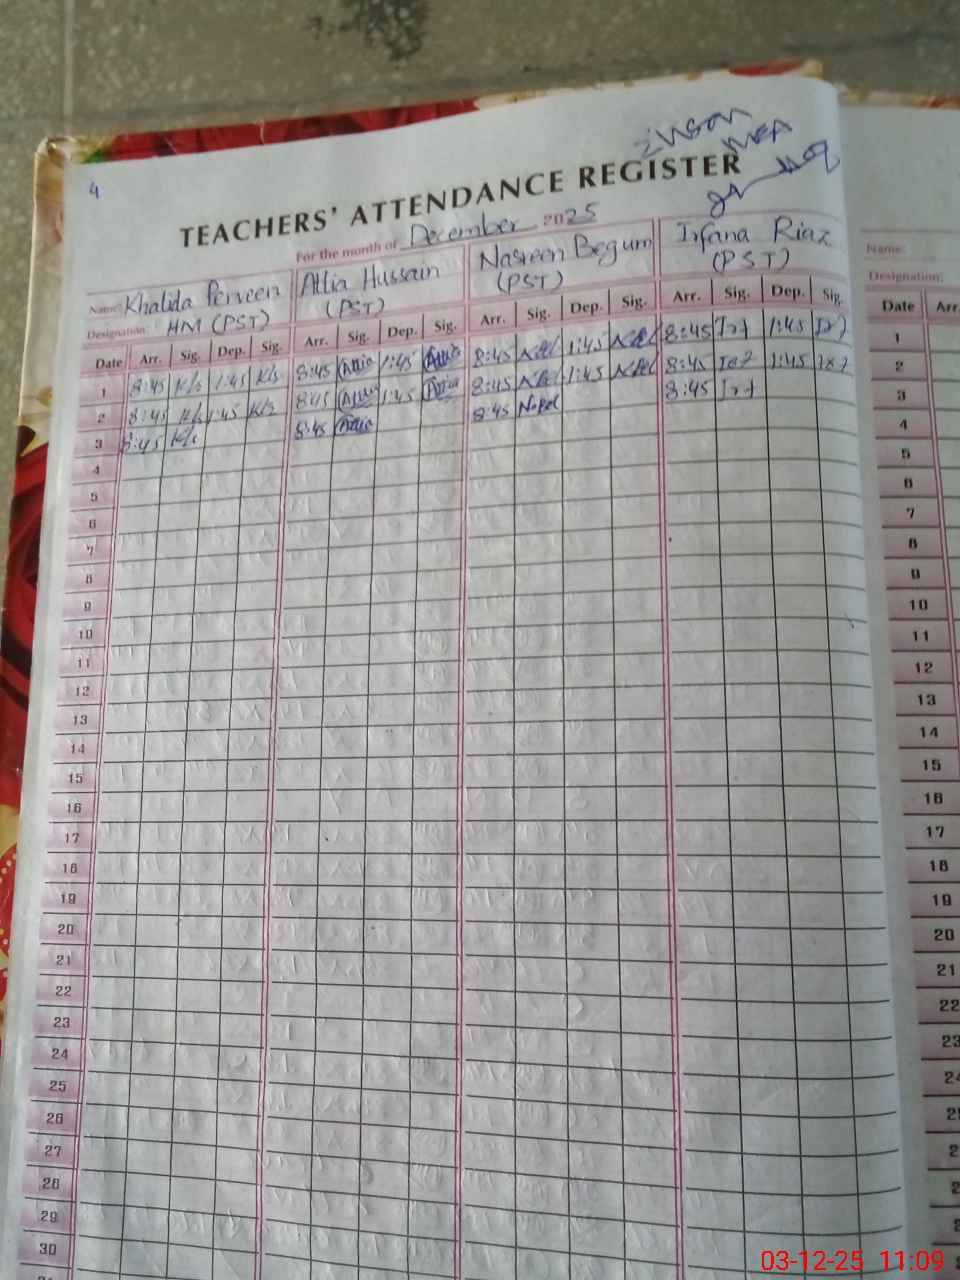 4
MEA
TEACHERS' ATTENDANCE REGISTER
For the month of December 2025
Name: Khalida Perveen Attia Hussain Nasreen Begum Irfana Riaz
Designation: HM (PST) (PST) (PST) (PST)
Date Arr. Sig. Dep. Sig. Arr. Sig. Dep. Sig. Arr. Sig. Dep. Sig. Arr. Sig. Dep. Sig.
1 8:45 K/s 1:45 K/s 8:45 Attia 1:45 Attia 8:45 1:45 8:45 1:45
2 8:45 K/s 1:45 K/s 8:45 Attia 1:45 Attia 8:45 1:45 8:45 1:45
3 8:45 K/s 8:45 Attia 8:45 8:45
4
5
6
7
8
9
10
11
12
13
14
15
16
17
18
19
20
21
22
23
24
25
26
27
28
29
30
Name:
Designation:
Date Arr.
1
2
3
4
5
6
7
8
9
10
11
12
13
14
15
16
17
18
19
20
21
22
23
03-12-25 11:09